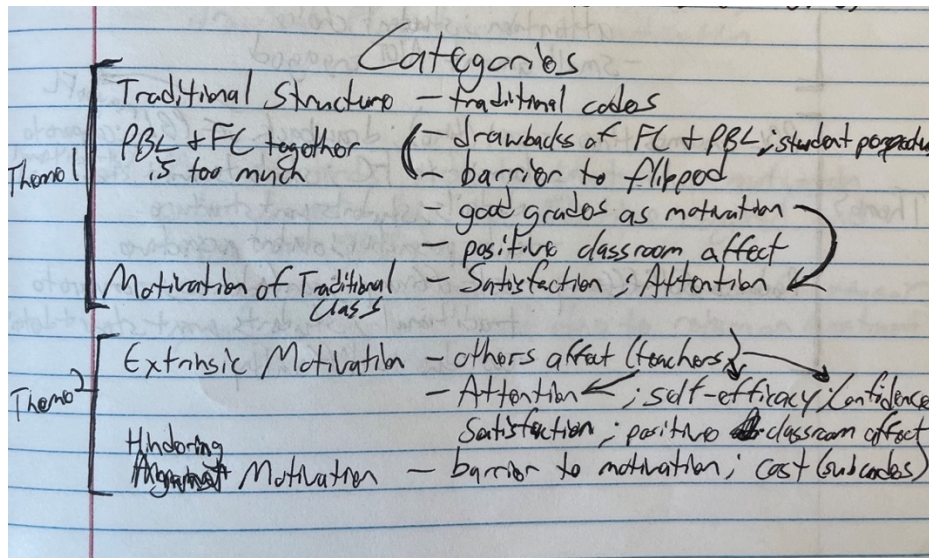 Categories
Traditional Structure – traditional codes
PBL & FC together – drawbacks of FC & PBL ; student perspective
Theme 1 is too much – barrier to flipped
– good grades as motivation
– positive classroom affect
Motivation of Traditional – Satisfaction ; Attention
Class
Extrinsic Motivation – others affect (teachers)
Theme 2 – Attention ; self-efficacy ; Confidence
Satisfaction ; positive classroom affect
Hindering
Motivation – barrier to motivation ; cost (subcodes)